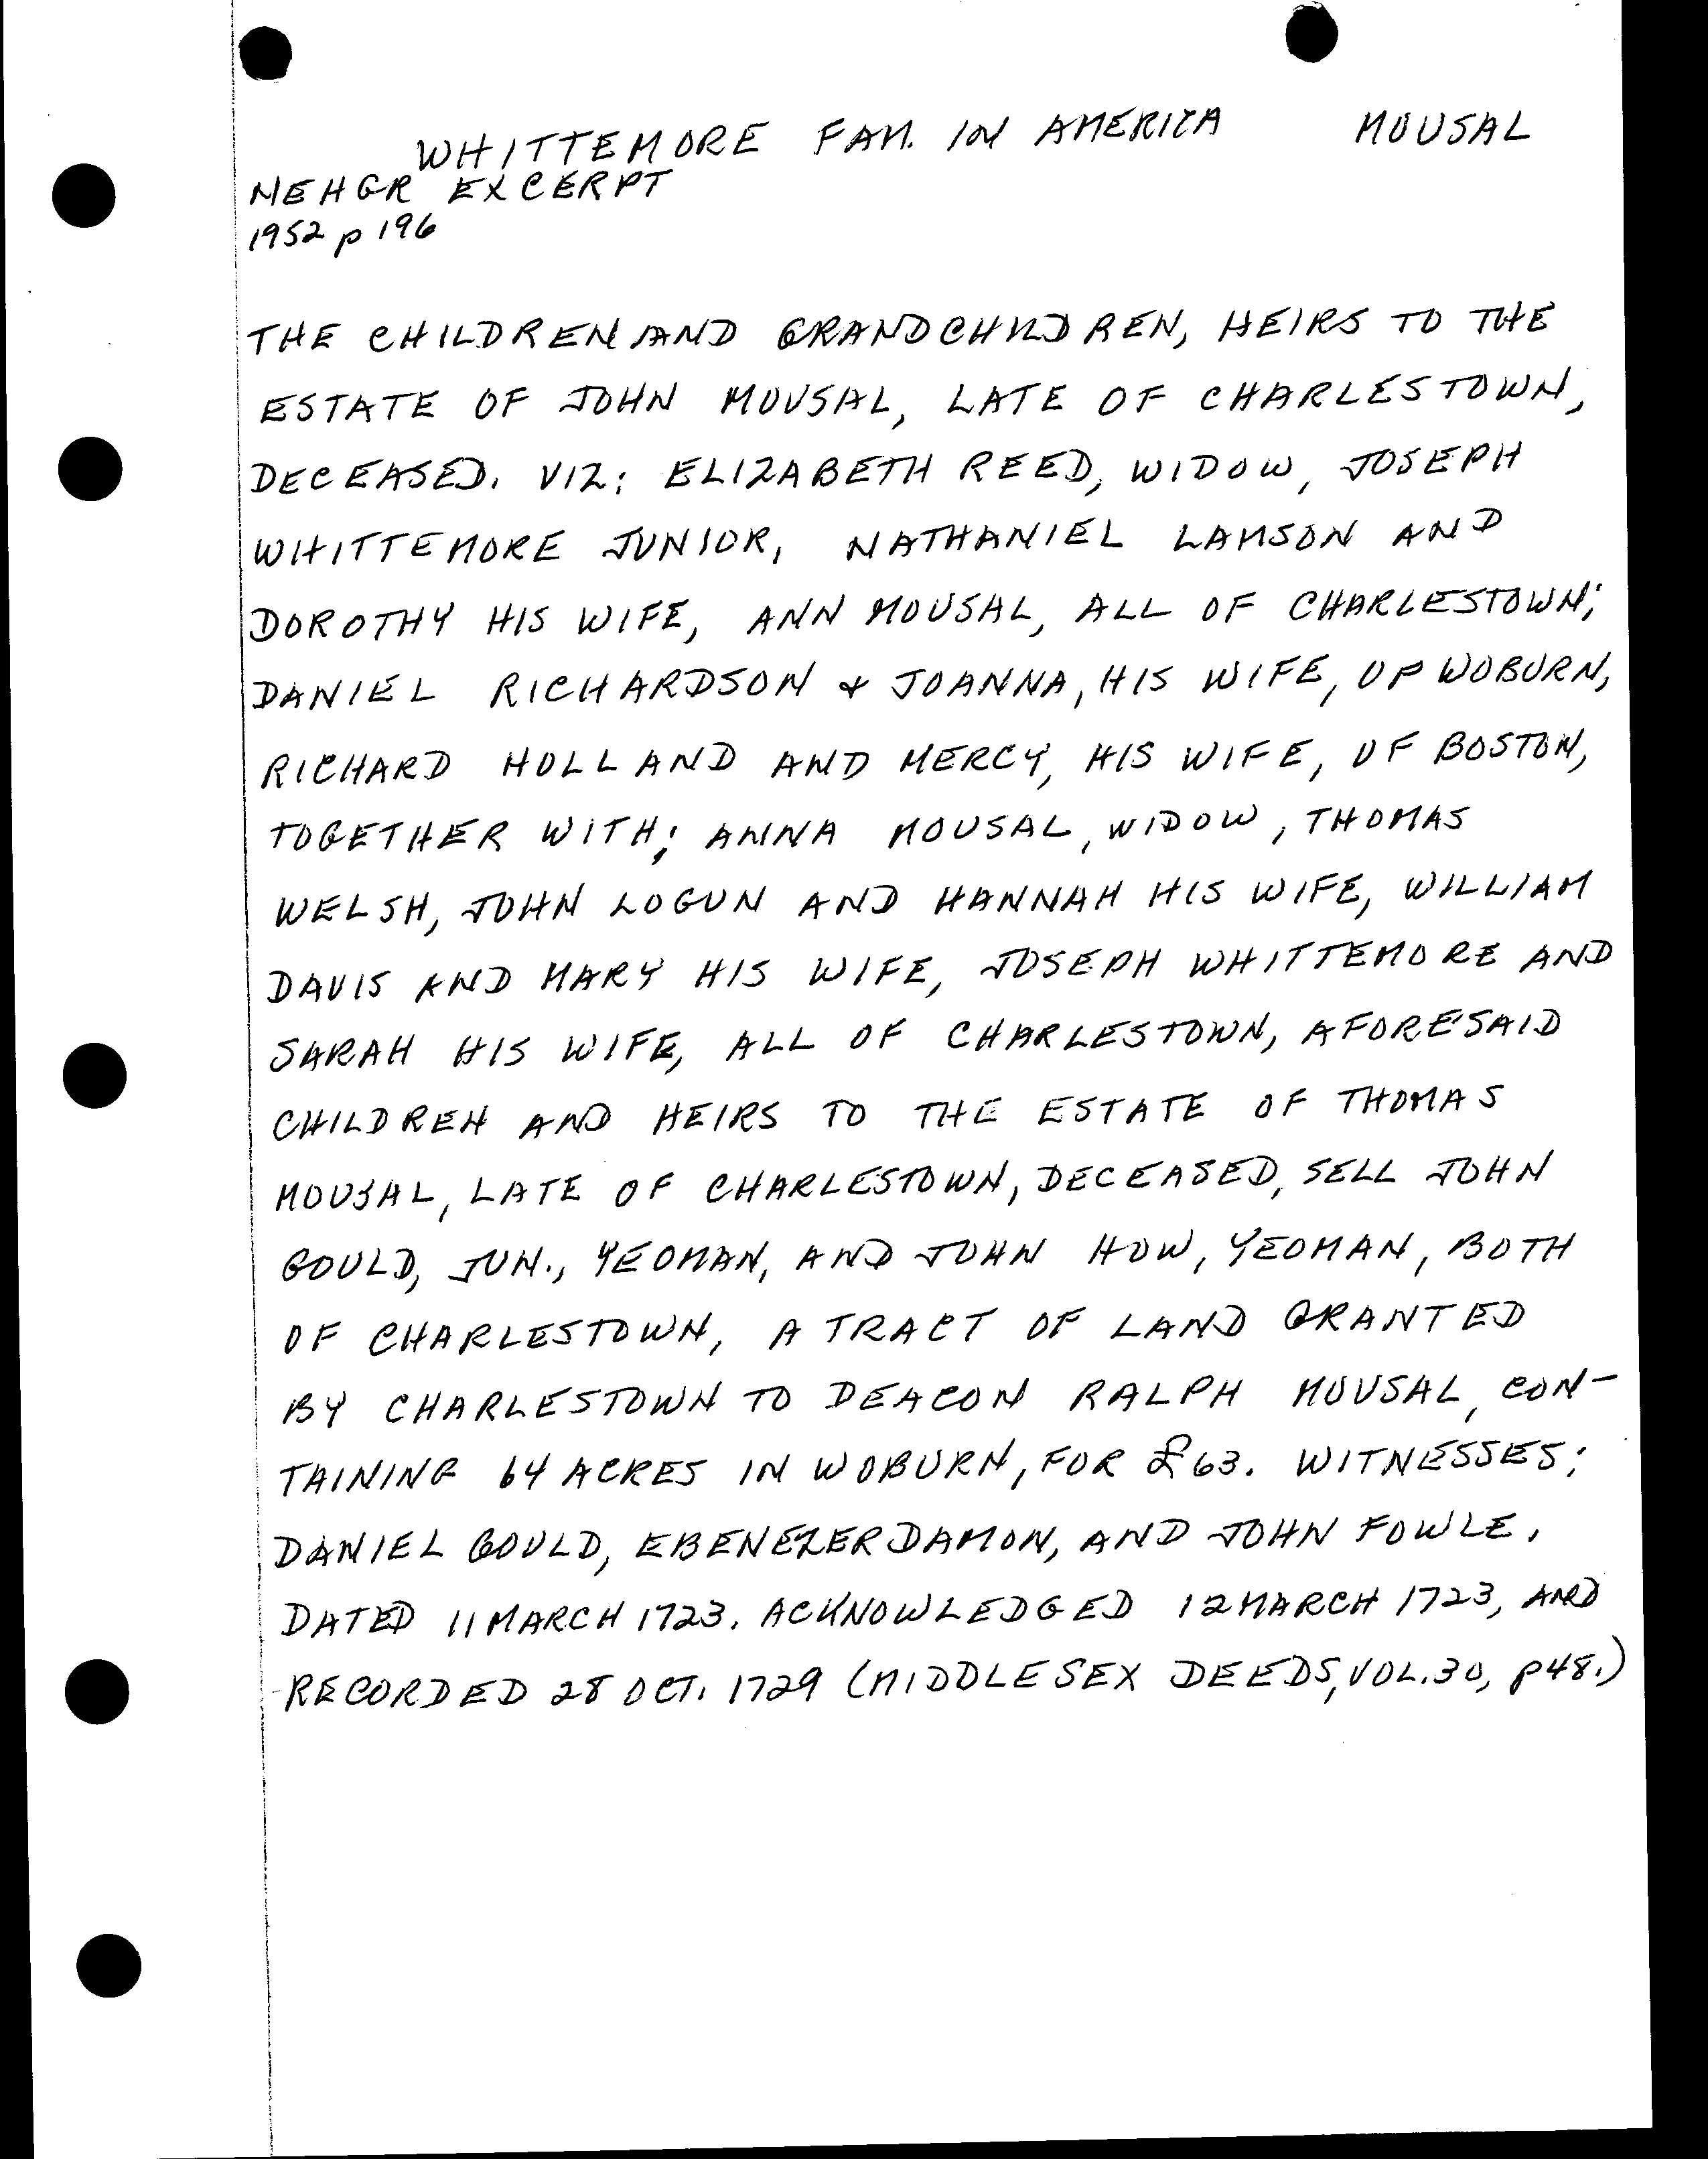 WHITTEMORE FAM. IN AMERICA MOUSAL
NEHGR EXCERPT
1952 p 196
THE CHILDREN AND GRANDCHILDREN, HEIRS TO THE
ESTATE OF JOHN MOUSAL, LATE OF CHARLESTOWN,
DECEASED. VIZ: ELIZABETH REED, WIDOW, JOSEPH
WHITTEMORE JUNIOR, NATHANIEL LAMSON AND
DOROTHY HIS WIFE, ANN MOUSAL, ALL OF CHARLESTOWN;
DANIEL RICHARDSON & JOANNA, HIS WIFE, OF WOBURN,
RICHARD HOLLAND AND MERCY, HIS WIFE, OF BOSTON,
TOGETHER WITH; ANNA MOUSAL, WIDOW, THOMAS
WELSH, JOHN LOGUN AND HANNAH HIS WIFE, WILLIAM
DAVIS AND MARY HIS WIFE, JOSEPH WHITTEMORE AND
SARAH HIS WIFE, ALL OF CHARLESTOWN, AFORESAID
CHILDREN AND HEIRS TO THE ESTATE OF THOMAS
MOUSAL, LATE OF CHARLESTOWN, DECEASED, SELL JOHN
GOULD, JUN., YEOMAN, AND JOHN HOW, YEOMAN, BOTH
OF CHARLESTOWN, A TRACT OF LAND GRANTED
BY CHARLESTOWN TO DEACON RALPH MOUSAL, CON-
TAINING 64 ACRES IN WOBURN, FOR £63. WITNESSES;
DANIEL GOULD, EBENEZER DAMON, AND JOHN FOWLE.
DATED 11 MARCH 1723. ACKNOWLEDGED 12 MARCH 1723, AND
RECORDED 28 OCT. 1729 (MIDDLESEX DEEDS, VOL. 30, p48.)